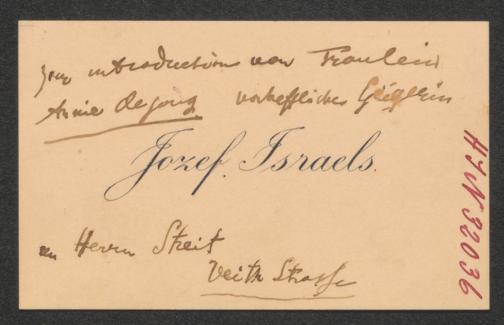 zur introduction von Fräulein
Annie de Jong vortreffliches
Jozef Israels.
an Herrn Streit
Veith Strasse
HJN 32036